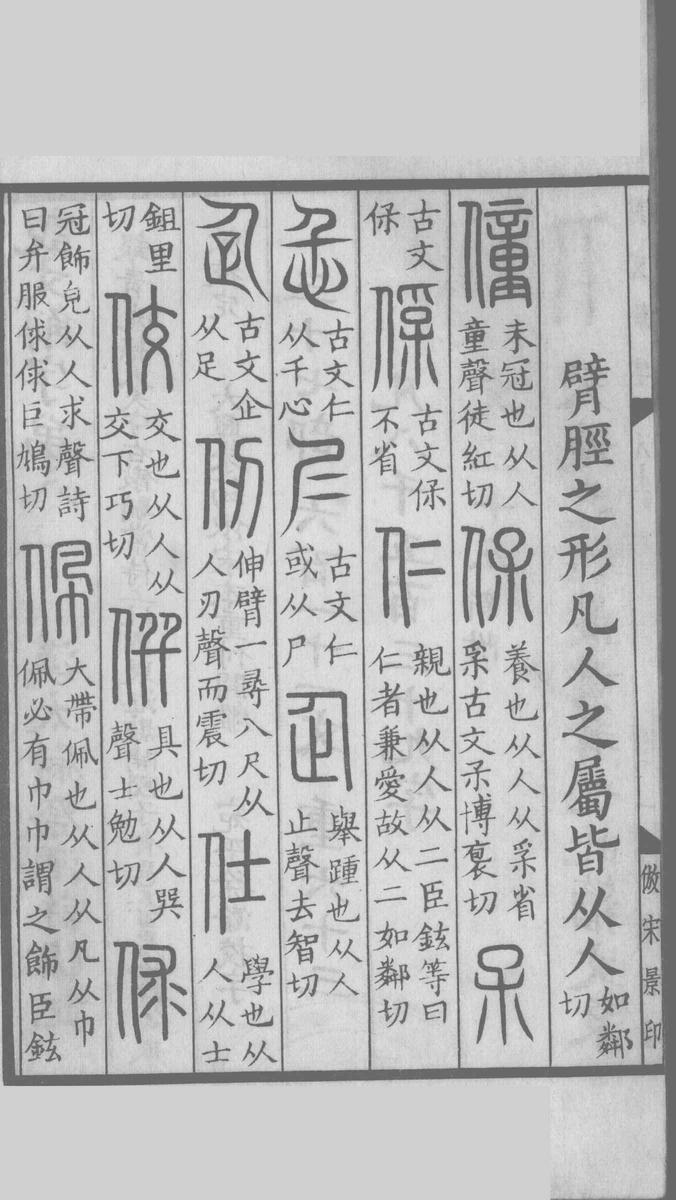 臂脛之形凡人之屬皆从人如鄰切
僮未冠也从人童聲徒紅切保養也从人从𤓽省𤓽古文孚博裒切𤓽
古文保𠈃古文保不省仁親也从人从二臣鉉等曰仁者兼愛故从二如鄰切
忎古文仁从千心𡰥古文仁或从尸企舉踵也从人止聲去智切
𠈮古文企从足仞伸臂一尋八尺从人刃聲而震切仕學也从人从士
鉏里切佼交也从人从交下巧切僎具也从人巽聲士勉切俅
冠飾皃从人求聲詩曰弁服俅俅巨鳩切佩大帶佩也从人从凡从巾佩必有巾巾謂之飾臣鉉
倣宋景印